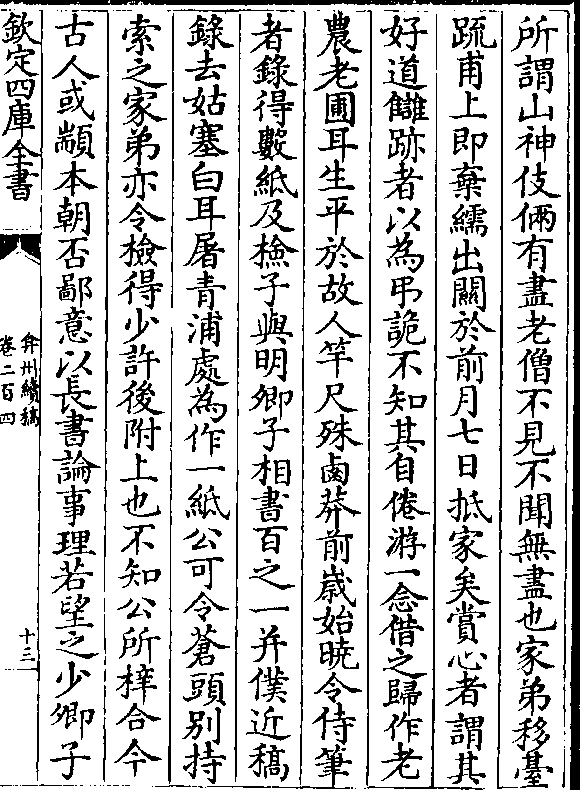 所謂山神伎倆有盡老僧不見不聞無盡也家弟移臺
䟽甫上即棄繻出關於前月七日抵家矣賞心者謂其
好道讎跡者以為弔詭不知其自倦游一念偕之歸作老
農老圃耳生平於故人竿尺殊鹵莽前嵗始曉令侍筆
者錄得數紙及檢子與明卿子相書百之一并僕近稿
錄去姑塞白耳屠青浦處為作一紙公可令蒼頭别持
索之家弟亦令檢得少許後附上也不知公所梓合今
古人或顓本朝否鄙意以長書論事理若望之少卿子
欽定四庫全書
弇州續稿
卷二百四
十三